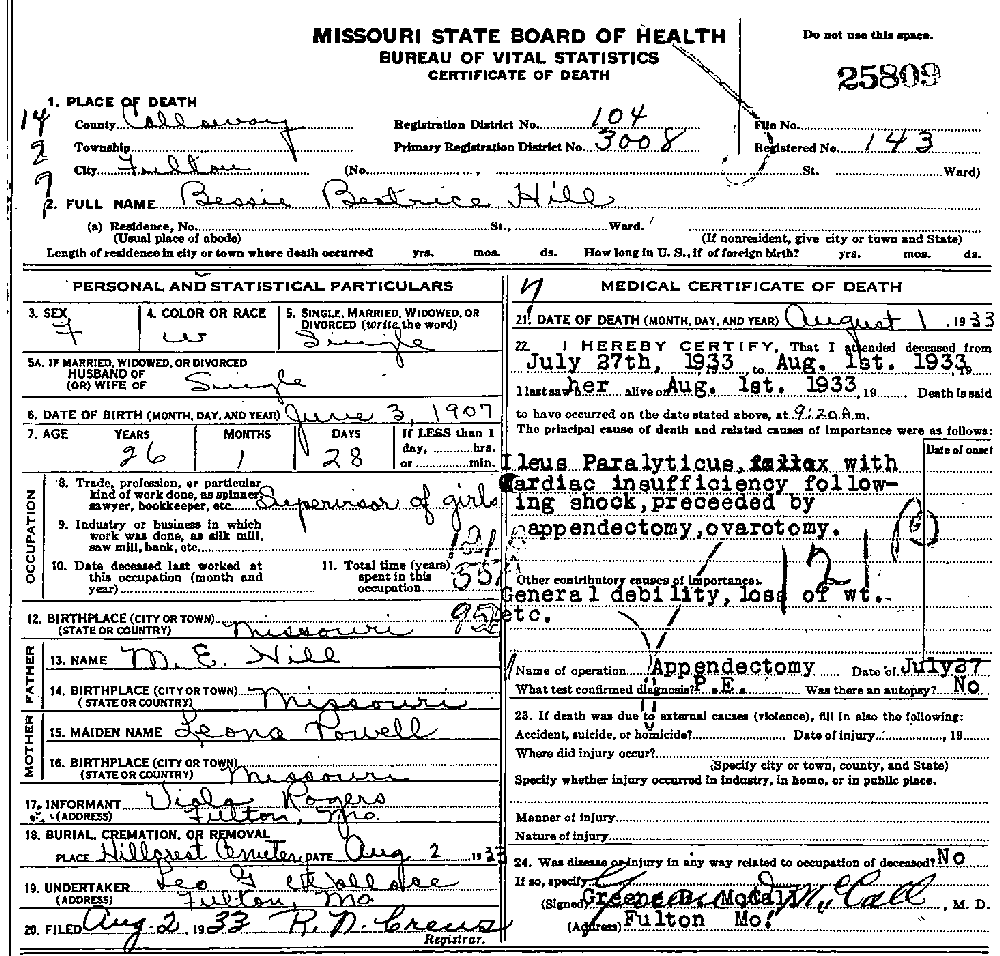 MISSOURI STATE BOARD OF HEALTH
BUREAU OF VITAL STATISTICS
CERTIFICATE OF DEATH
Do not use this space.
25809
1. PLACE OF DEATH
14
County Callaway Registration District No. 104 File No.
2
Township Primary Registration District No. 3008 Registered No. 143
City Fulton (No. , St. Ward)
9
2. FULL NAME Bessie Beatrice Hill
(a) Residence, No. St., Ward.
(Usual place of abode) (If nonresident, give city or town and State)
Length of residence in city or town where death occurred yrs. mos. ds. How long in U. S., if of foreign birth? yrs. mos. ds.
PERSONAL AND STATISTICAL PARTICULARS
3. SEX 4. COLOR OR RACE 5. SINGLE, MARRIED, WIDOWED, OR
DIVORCED (write the word)
F W Single
5A. IF MARRIED, WIDOWED, OR DIVORCED
HUSBAND OF
(OR) WIFE OF Single
6. DATE OF BIRTH (MONTH, DAY, AND YEAR) June 3, 1907
7. AGE YEARS MONTHS DAYS If LESS than 1
day, hrs.
or min.
26 1 28
OCCUPATION
8. Trade, profession, or particular
kind of work done, as spinner,
sawyer, bookkeeper, etc. Supervisor of girls
9. Industry or business in which
work was done, as silk mill,
saw mill, bank, etc. 121
10. Date deceased last worked at
this occupation (month and
year)
11. Total time (years)
spent in this
occupation
12. BIRTHPLACE (CITY OR TOWN)
(STATE OR COUNTRY) Missouri
FATHER
13. NAME M. E. Hill
14. BIRTHPLACE (CITY OR TOWN)
(STATE OR COUNTRY) Missouri
MOTHER
15. MAIDEN NAME Leona Powell
16. BIRTHPLACE (CITY OR TOWN)
(STATE OR COUNTRY) Missouri
17. INFORMANT Viola Rogers
(ADDRESS) Fulton, Mo.
18. BURIAL, CREMATION, OR REMOVAL
PLACE Hillcrest Cemetery DATE Aug 2 1933
19. UNDERTAKER Leo
(ADDRESS) Fulton, Mo
20. FILED Aug-2, 1933 R. N. Crews
Registrar.
MEDICAL CERTIFICATE OF DEATH
21. DATE OF DEATH (MONTH, DAY, AND YEAR) August 1, 1933
22. I HEREBY CERTIFY, That I attended deceased from
July 27th, 1933, to Aug. 1st. 1933, 19
I last saw her alive on Aug. 1st. 1933, 19 Death is said
to have occurred on the date stated above, at 9:20 A.m.
The principal cause of death and related causes of importance were as follows:
Date of onset
Ileus Paralyticus, with
Cardiac insufficiency follow-
ing shock, preceeded by
appendectomy, ovarotomy.
121
Other contributory causes of importance:
General debility, loss of wt.
etc.
Name of operation Appendectomy Date of July 27
What test confirmed diagnosis? P. E. Was there an autopsy? No
23. If death was due to external causes (violence), fill in also the following:
Accident, suicide, or homicide? Date of injury , 19
Where did injury occur?
(Specify city or town, county, and State)
Specify whether injury occurred in industry, in home, or in public place.
Manner of injury
Nature of injury
24. Was disease or injury in any way related to occupation of deceased? No
If so, specify
(Signed) Greene D. McCall, M. D.
(Address) Fulton Mo.